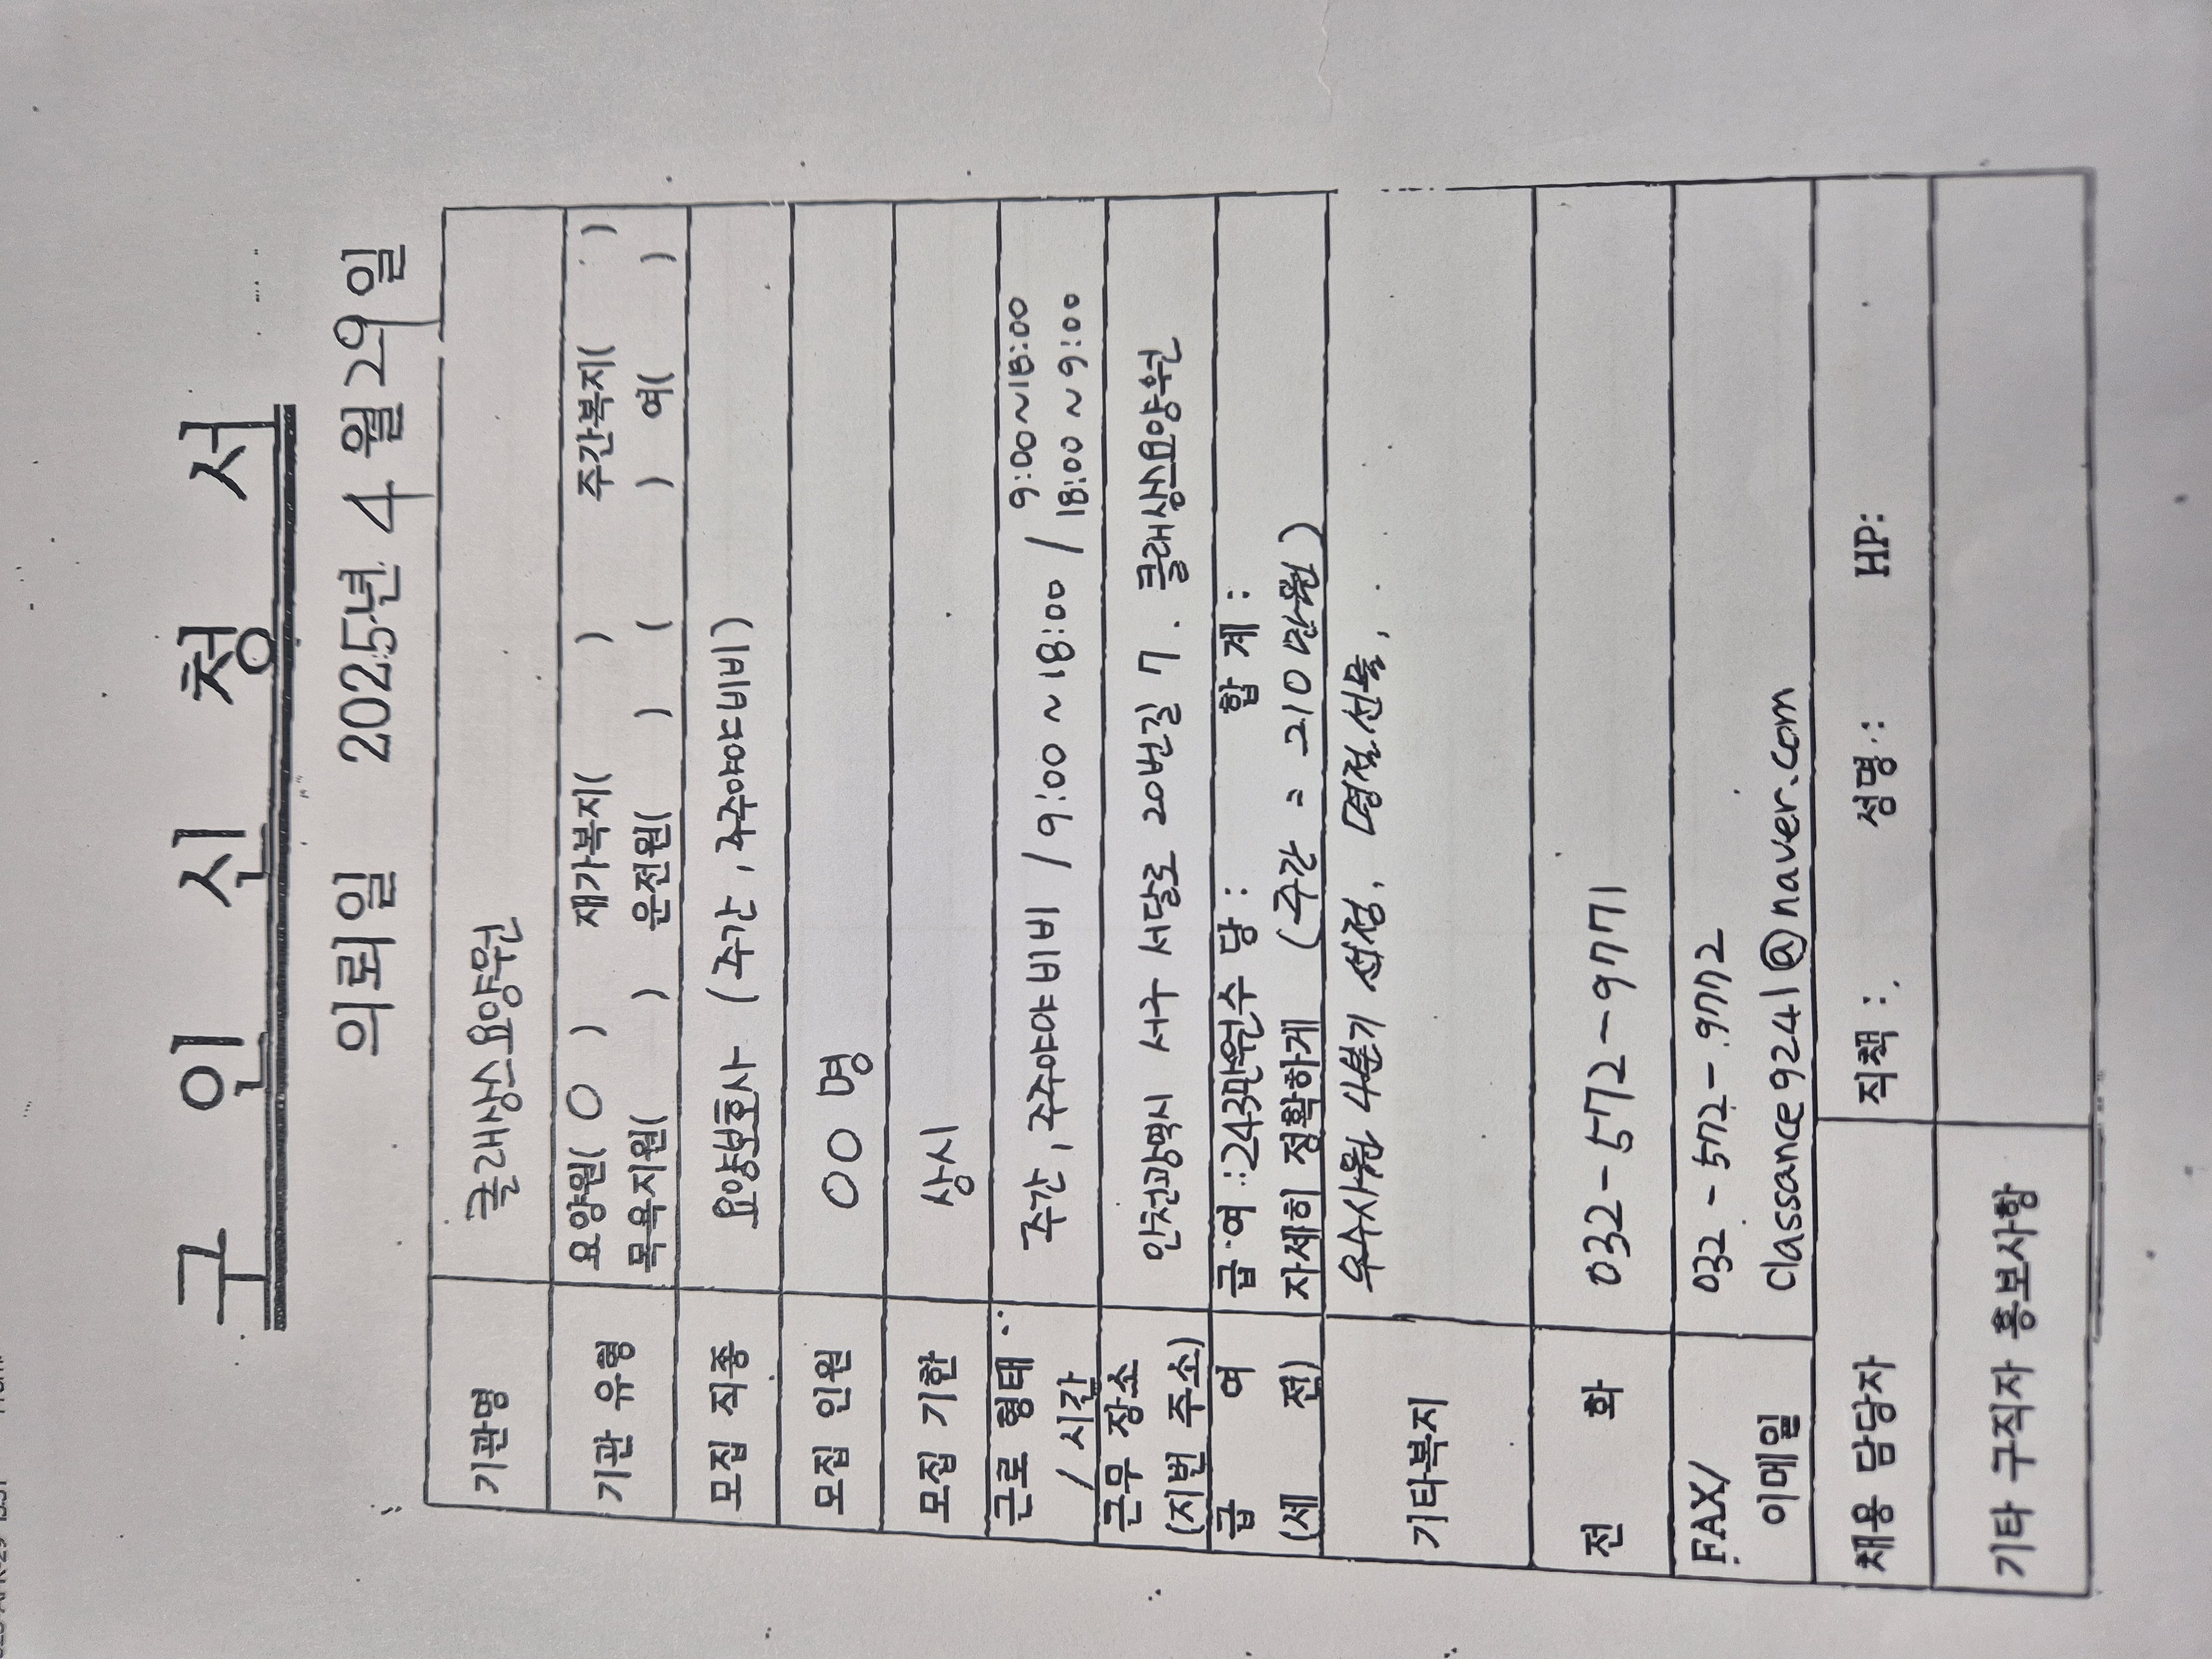 구 인 신 청 서
의뢰일 2025년 4월 29일
기관명 클래상스요양원
기관 유형 요양원( O ) 재가복지( ) 주간복지( )
목욕지원( ) 운전원( ) ( ) 여( )
모집 직종 요양보호사 (주간, 주주야야비비)
모집 인원 00 명
모집 기한 상시
근로 형태 / 시간 주간, 주주야야비비 / 9:00 ~ 18:00 / 9:00~18:00
18:00 ~ 9:00
근무 장소
(지번 주소) 인천광역시 서구 서달로 20번길 7. 클래상스요양원
급 여 급 여 : 243만원 수 당 : 합 계 :
(세 전) 자세히 정확하게 (주간 = 210만원)
기타복지 우수사원 4분기 선정, 명절선물,
전 화 032-572-9771
FAX/ 032-572-9772
이메일 classance9241@naver.com
채용 담당자 직책 : 성명 : HP:
기타 구직자 홍보사항